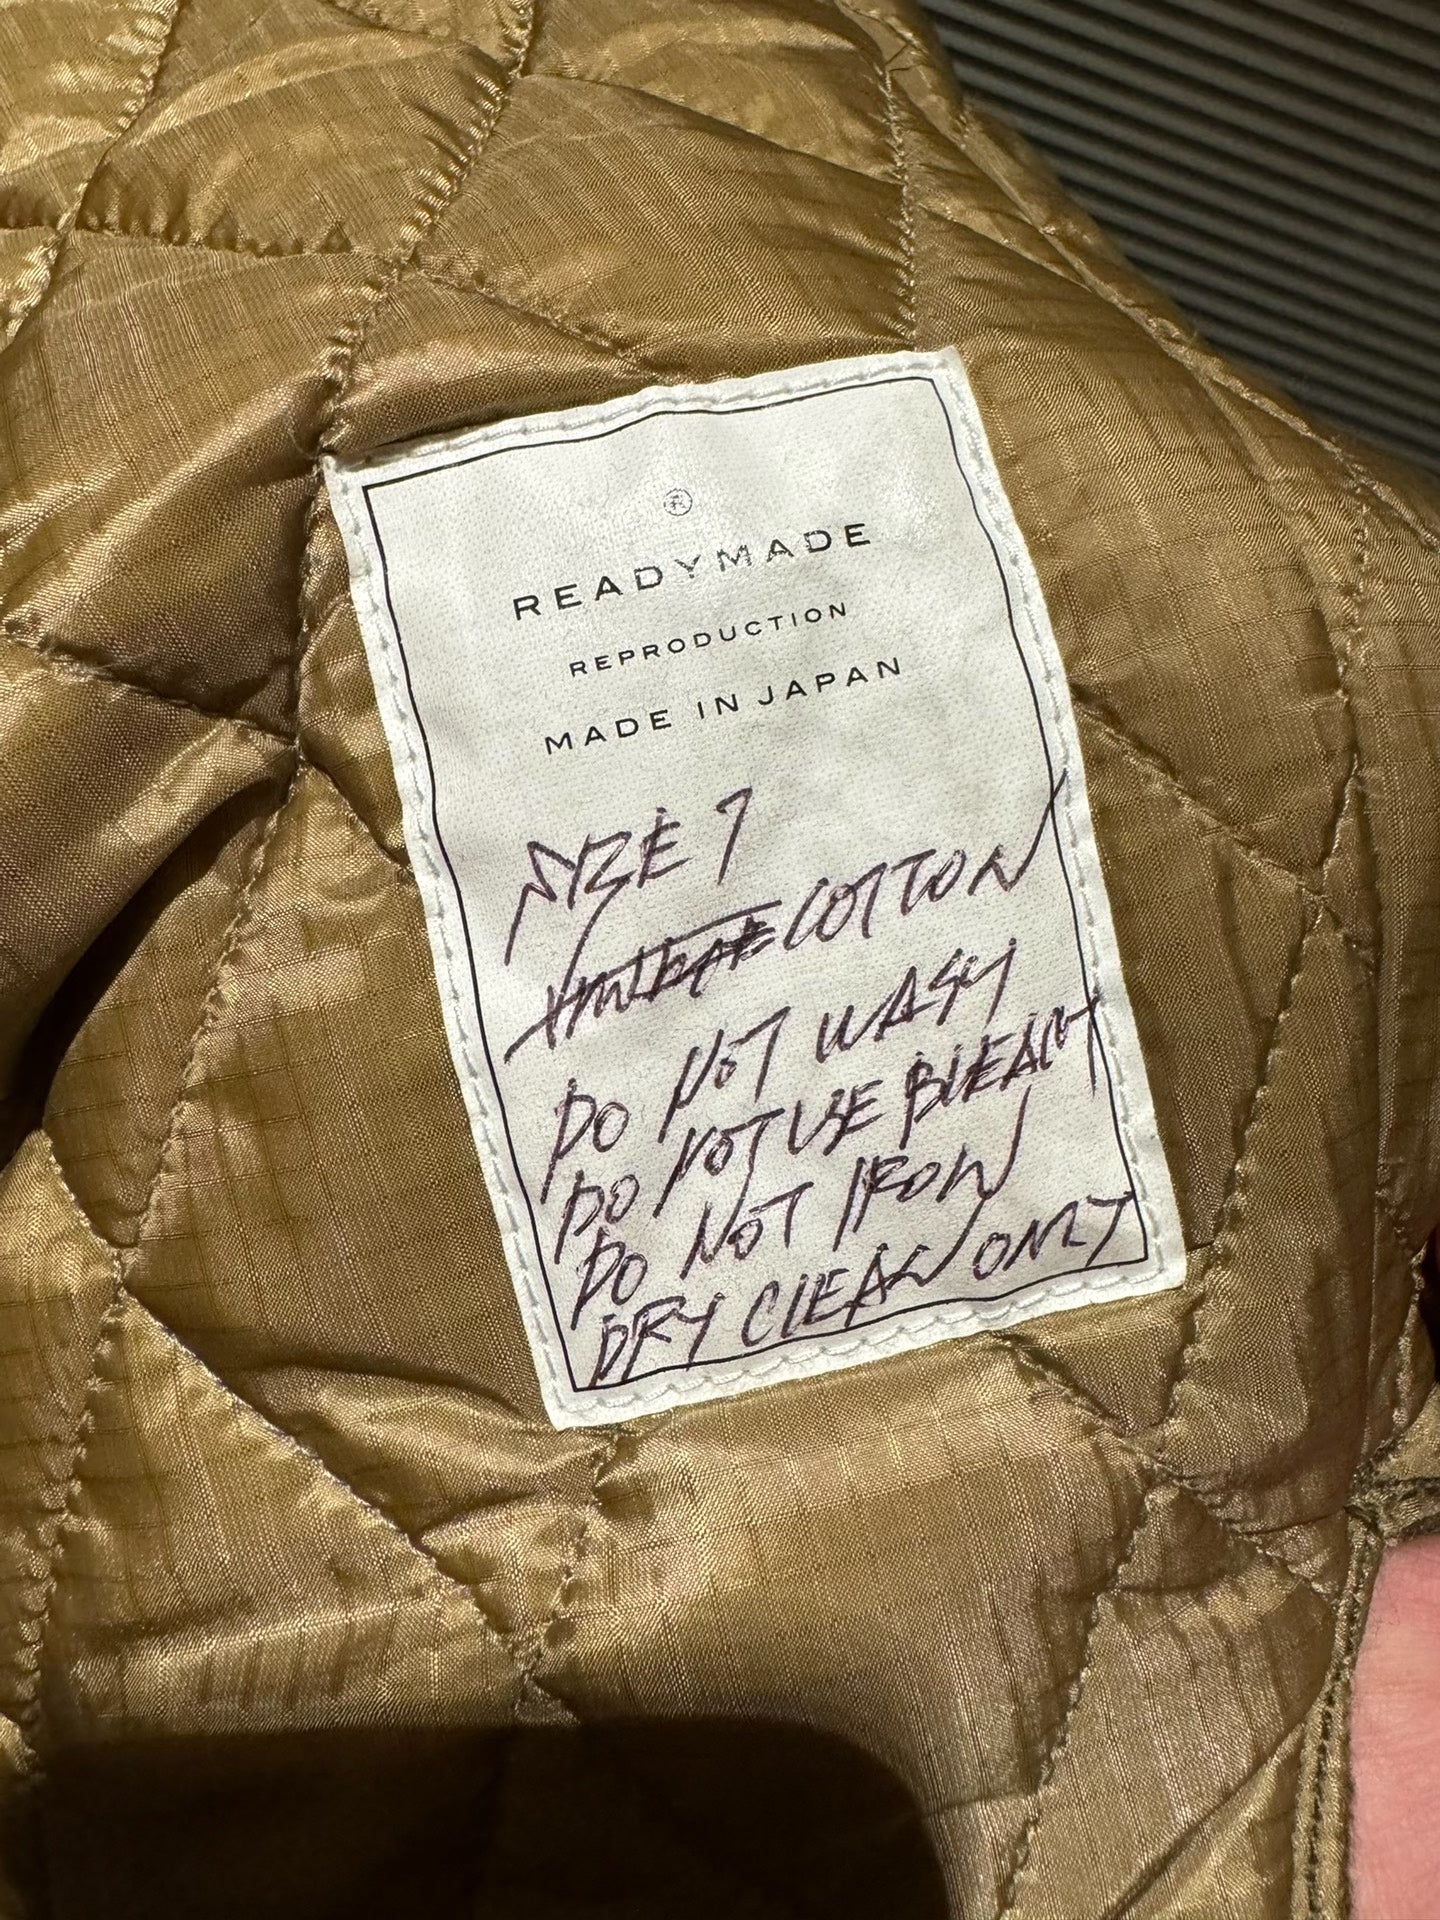 ®
READYMADE
REPRODUCTION
MADE IN JAPAN
SIZE 1
COTTON
DO NOT WASH
DO NOT USE BLEACH
DO NOT IRON
DRY CLEAN ONLY